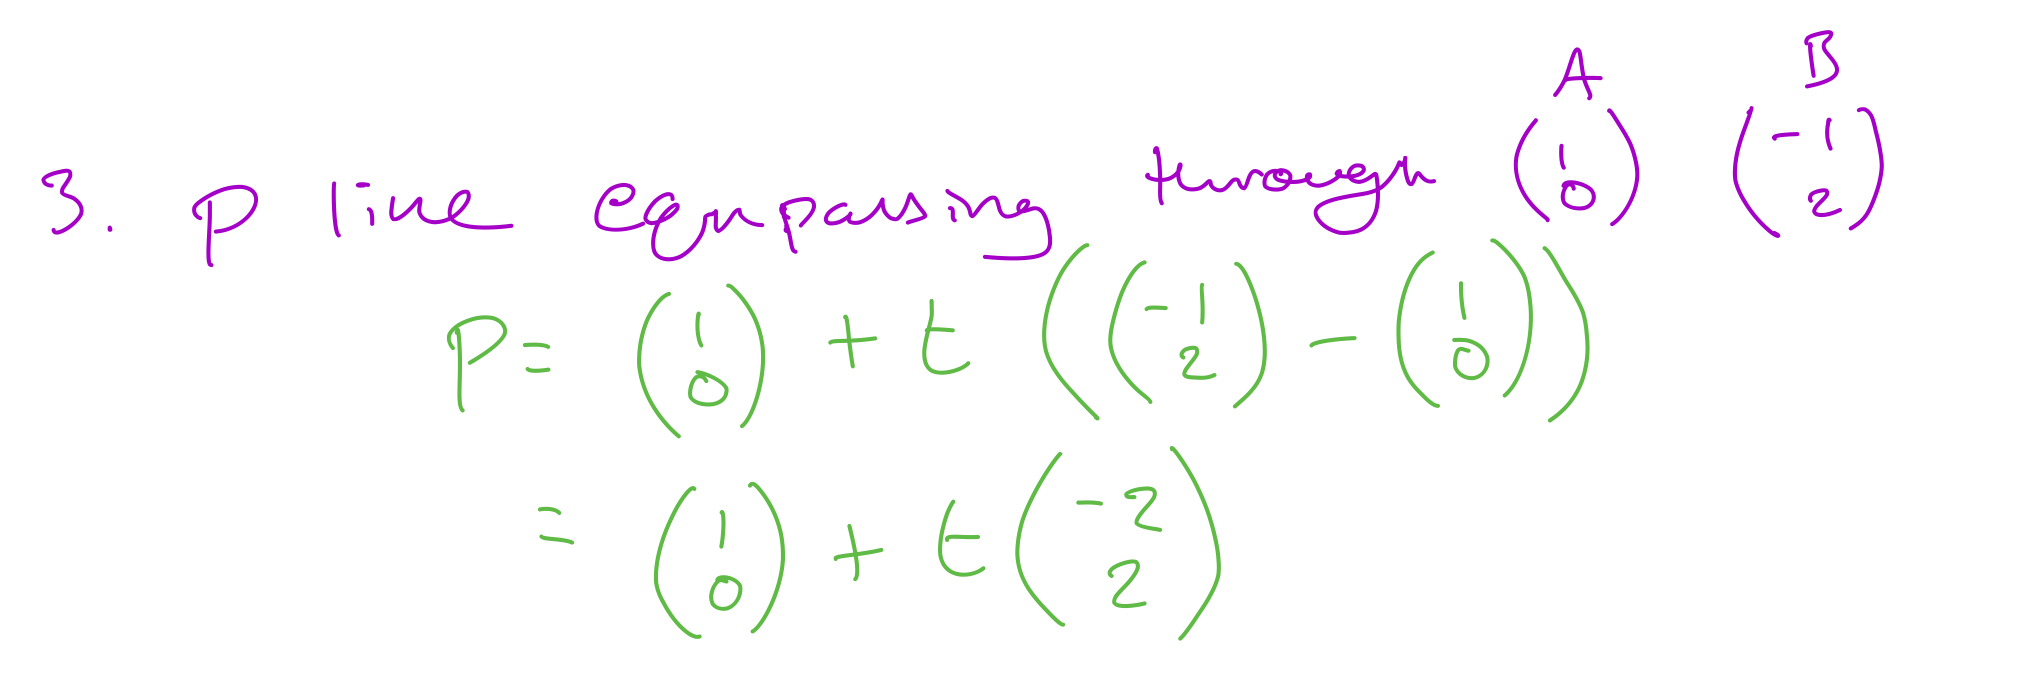 A B
3. p line eqn passing through (1 0) (-1 2)
P = (1 0) + t ((-1 2) - (1 0))
= (1 0) + t (-2 2)